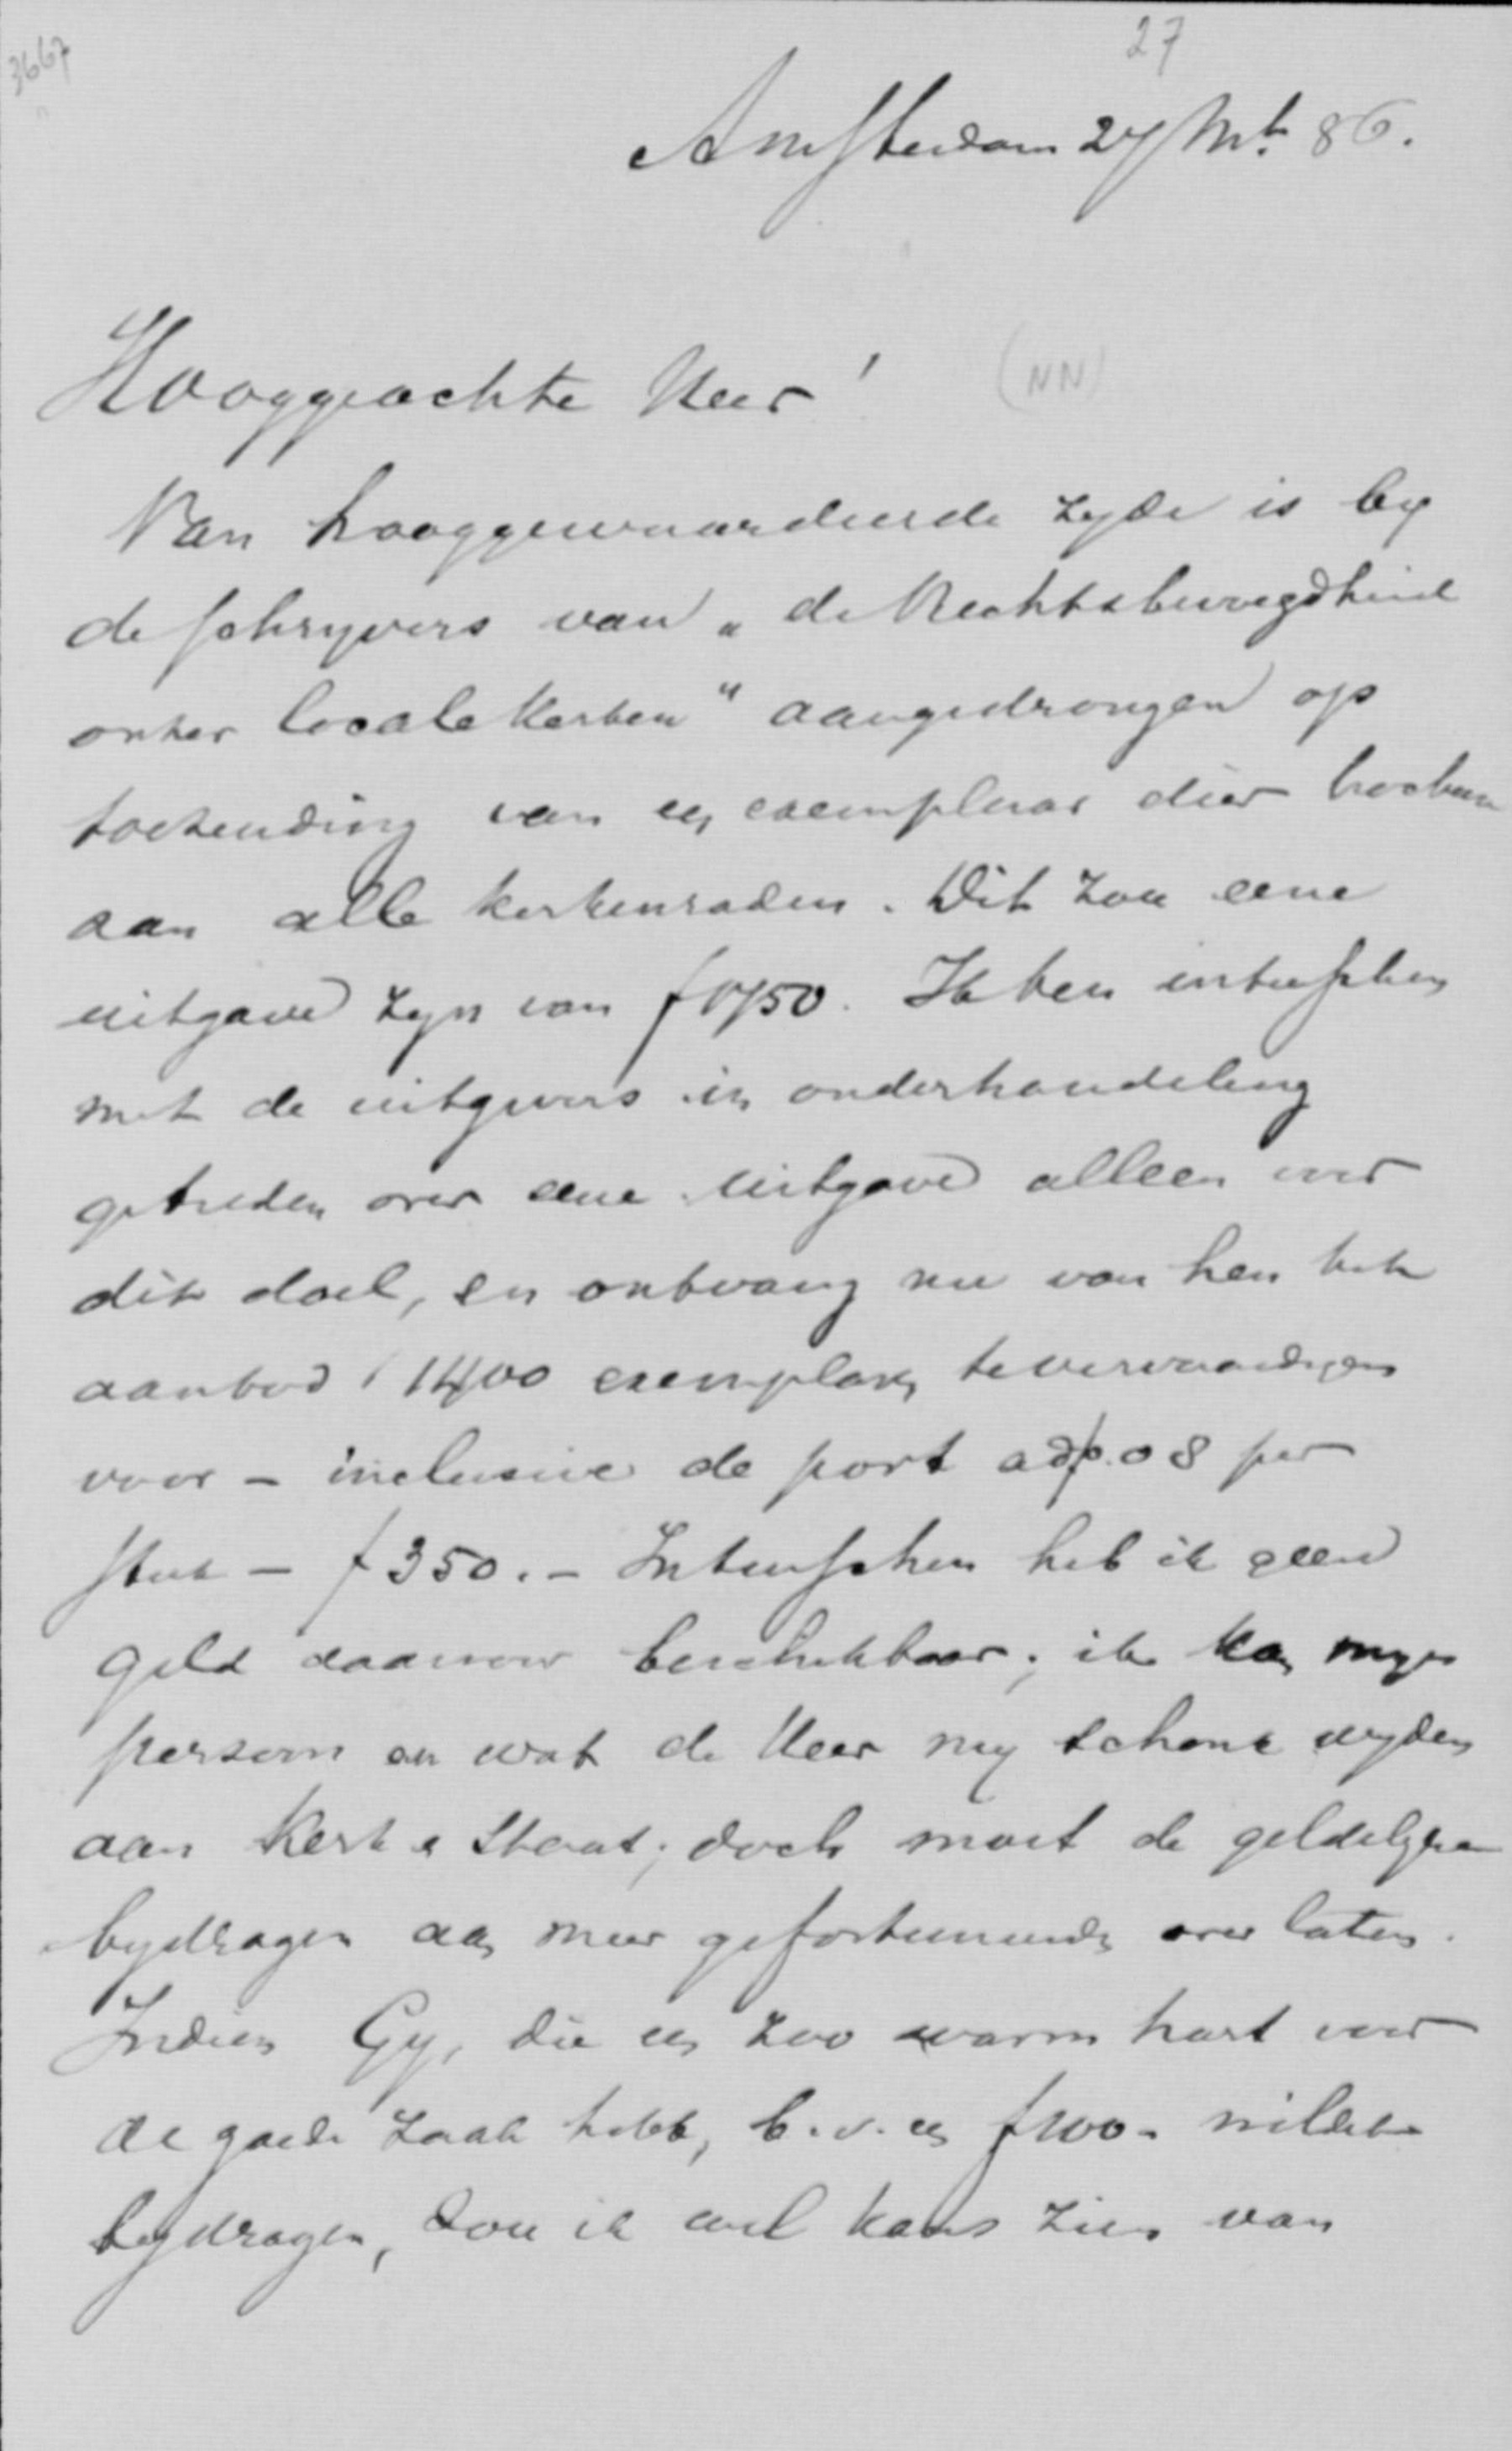 3667
27
Amsterdam 27 Mrt 86.
Hooggeachte Heer! (NN)
Van hooggewaardeerde zyde is by
de schryvers van „de Rechtsbevoegdheid
onzer locale Kerken" aangedrongen op
toezending van een exemplaar dier brochure
aan alle kerkenraden. Dit zou eene
uitgave zyn van Ik ben intusschen
met de uitgevers in onderhandeling
getreden over eene uitgave alleen voor
dit doel, en ontvang nu van hen het
aanbod 1400 exemplaren te vervaardigen
voor – inclusive de port ad f0.08 per
stuk – f 350.– Intusschen heb ik geen
geld daarvoor beschikbaar; ik kan myn
persoon en wat de Heer my schonk wyden
aan Kerk & Staat; doch moet de geldelyke
bydragen aan meer gefortuneerden over laten.
Indien Gy, die een zoo warm hart voor
de goede zaak hebt, b.v. een f100.– wildet
bydragen, zou ik wel kans zien van